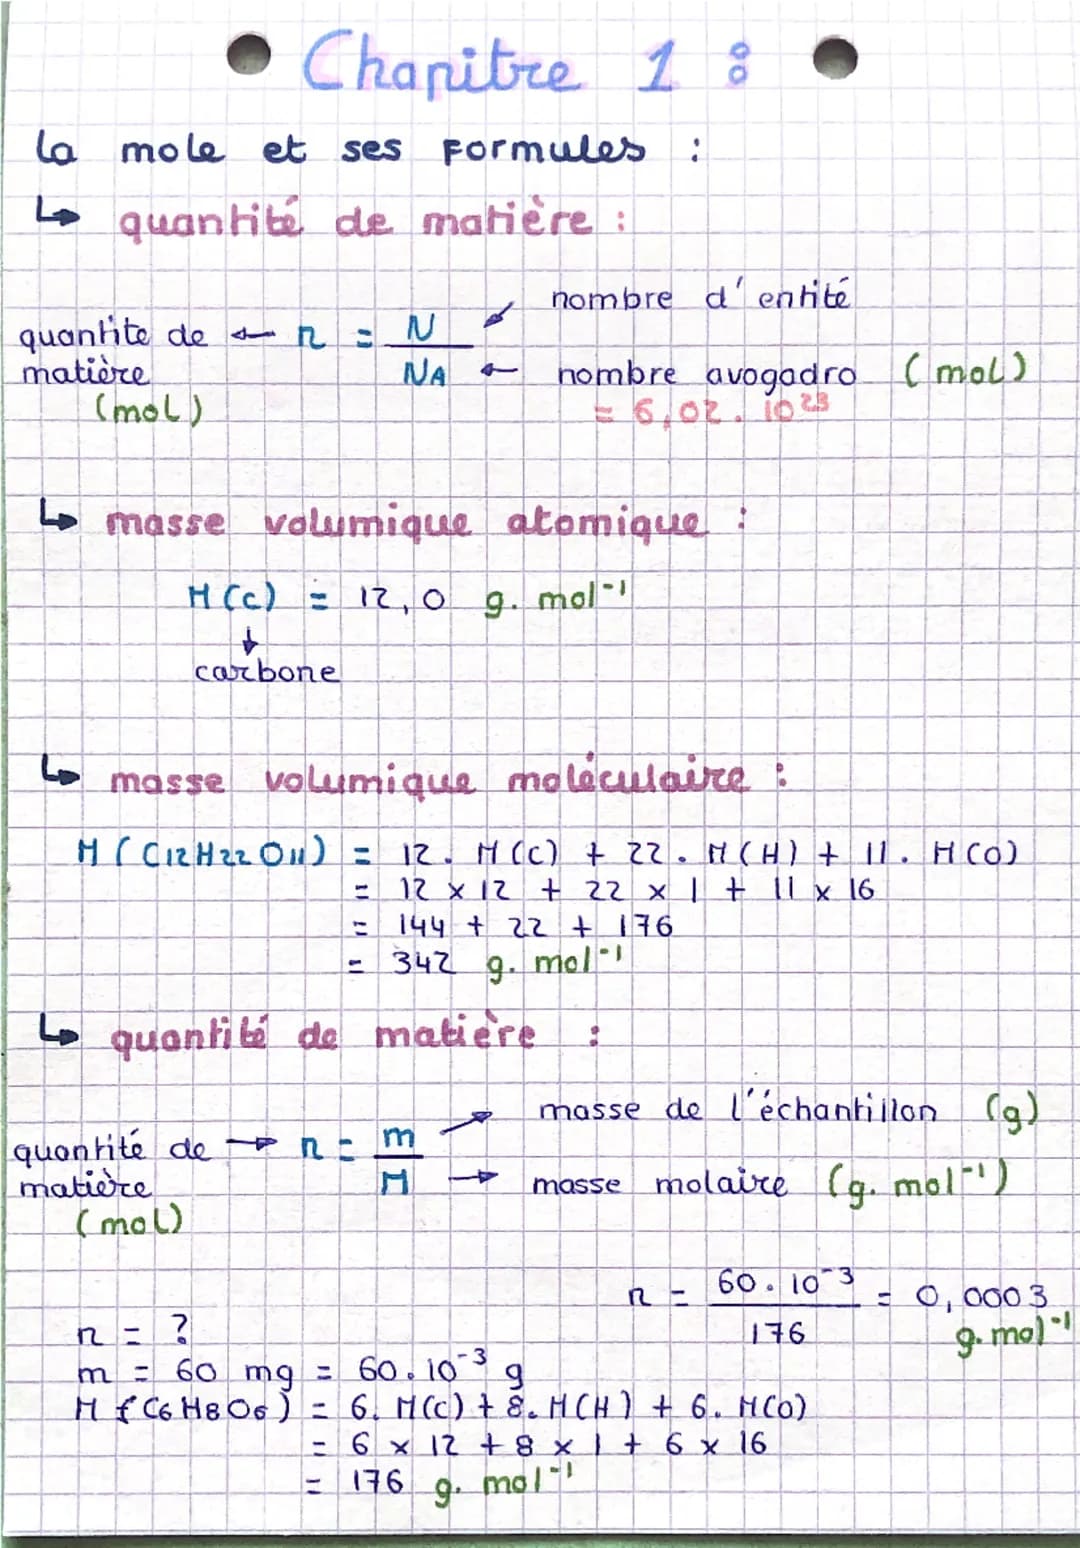 Chapitre 1 :
la mole et ses formules :
↳ quantité de matière :
nombre d'entité
quantite de ← n = N / NA
matière
(mol)
nombre avogadro (mol)
= 6,02 . 10²³
↳ masse volumique atomique :
M(C) = 12,0 g. mol⁻¹
↓
carbone
↳ masse volumique moléculaire :
M (C12H22O11) = 12 . M(C) + 22 . M(H) + 11 . M(O)
= 12 x 12 + 22 x 1 + 11 x 16
= 144 + 22 + 176
= 342 g. mol⁻¹
↳ quantité de matière :
masse de l'échantillon (g)
quantité de → n = m / M
matière
(mol)
masse molaire (g. mol⁻¹)
n = 60 . 10⁻³ / 176 = 0,0003
g. mol⁻¹
n = ?
m = 60 mg = 60 . 10⁻³ g
M (C6H8O6) = 6 . M(C) + 8 . M(H) + 6 . M(O)
= 6 x 12 + 8 x 1 + 6 x 16
= 176 g. mol⁻¹